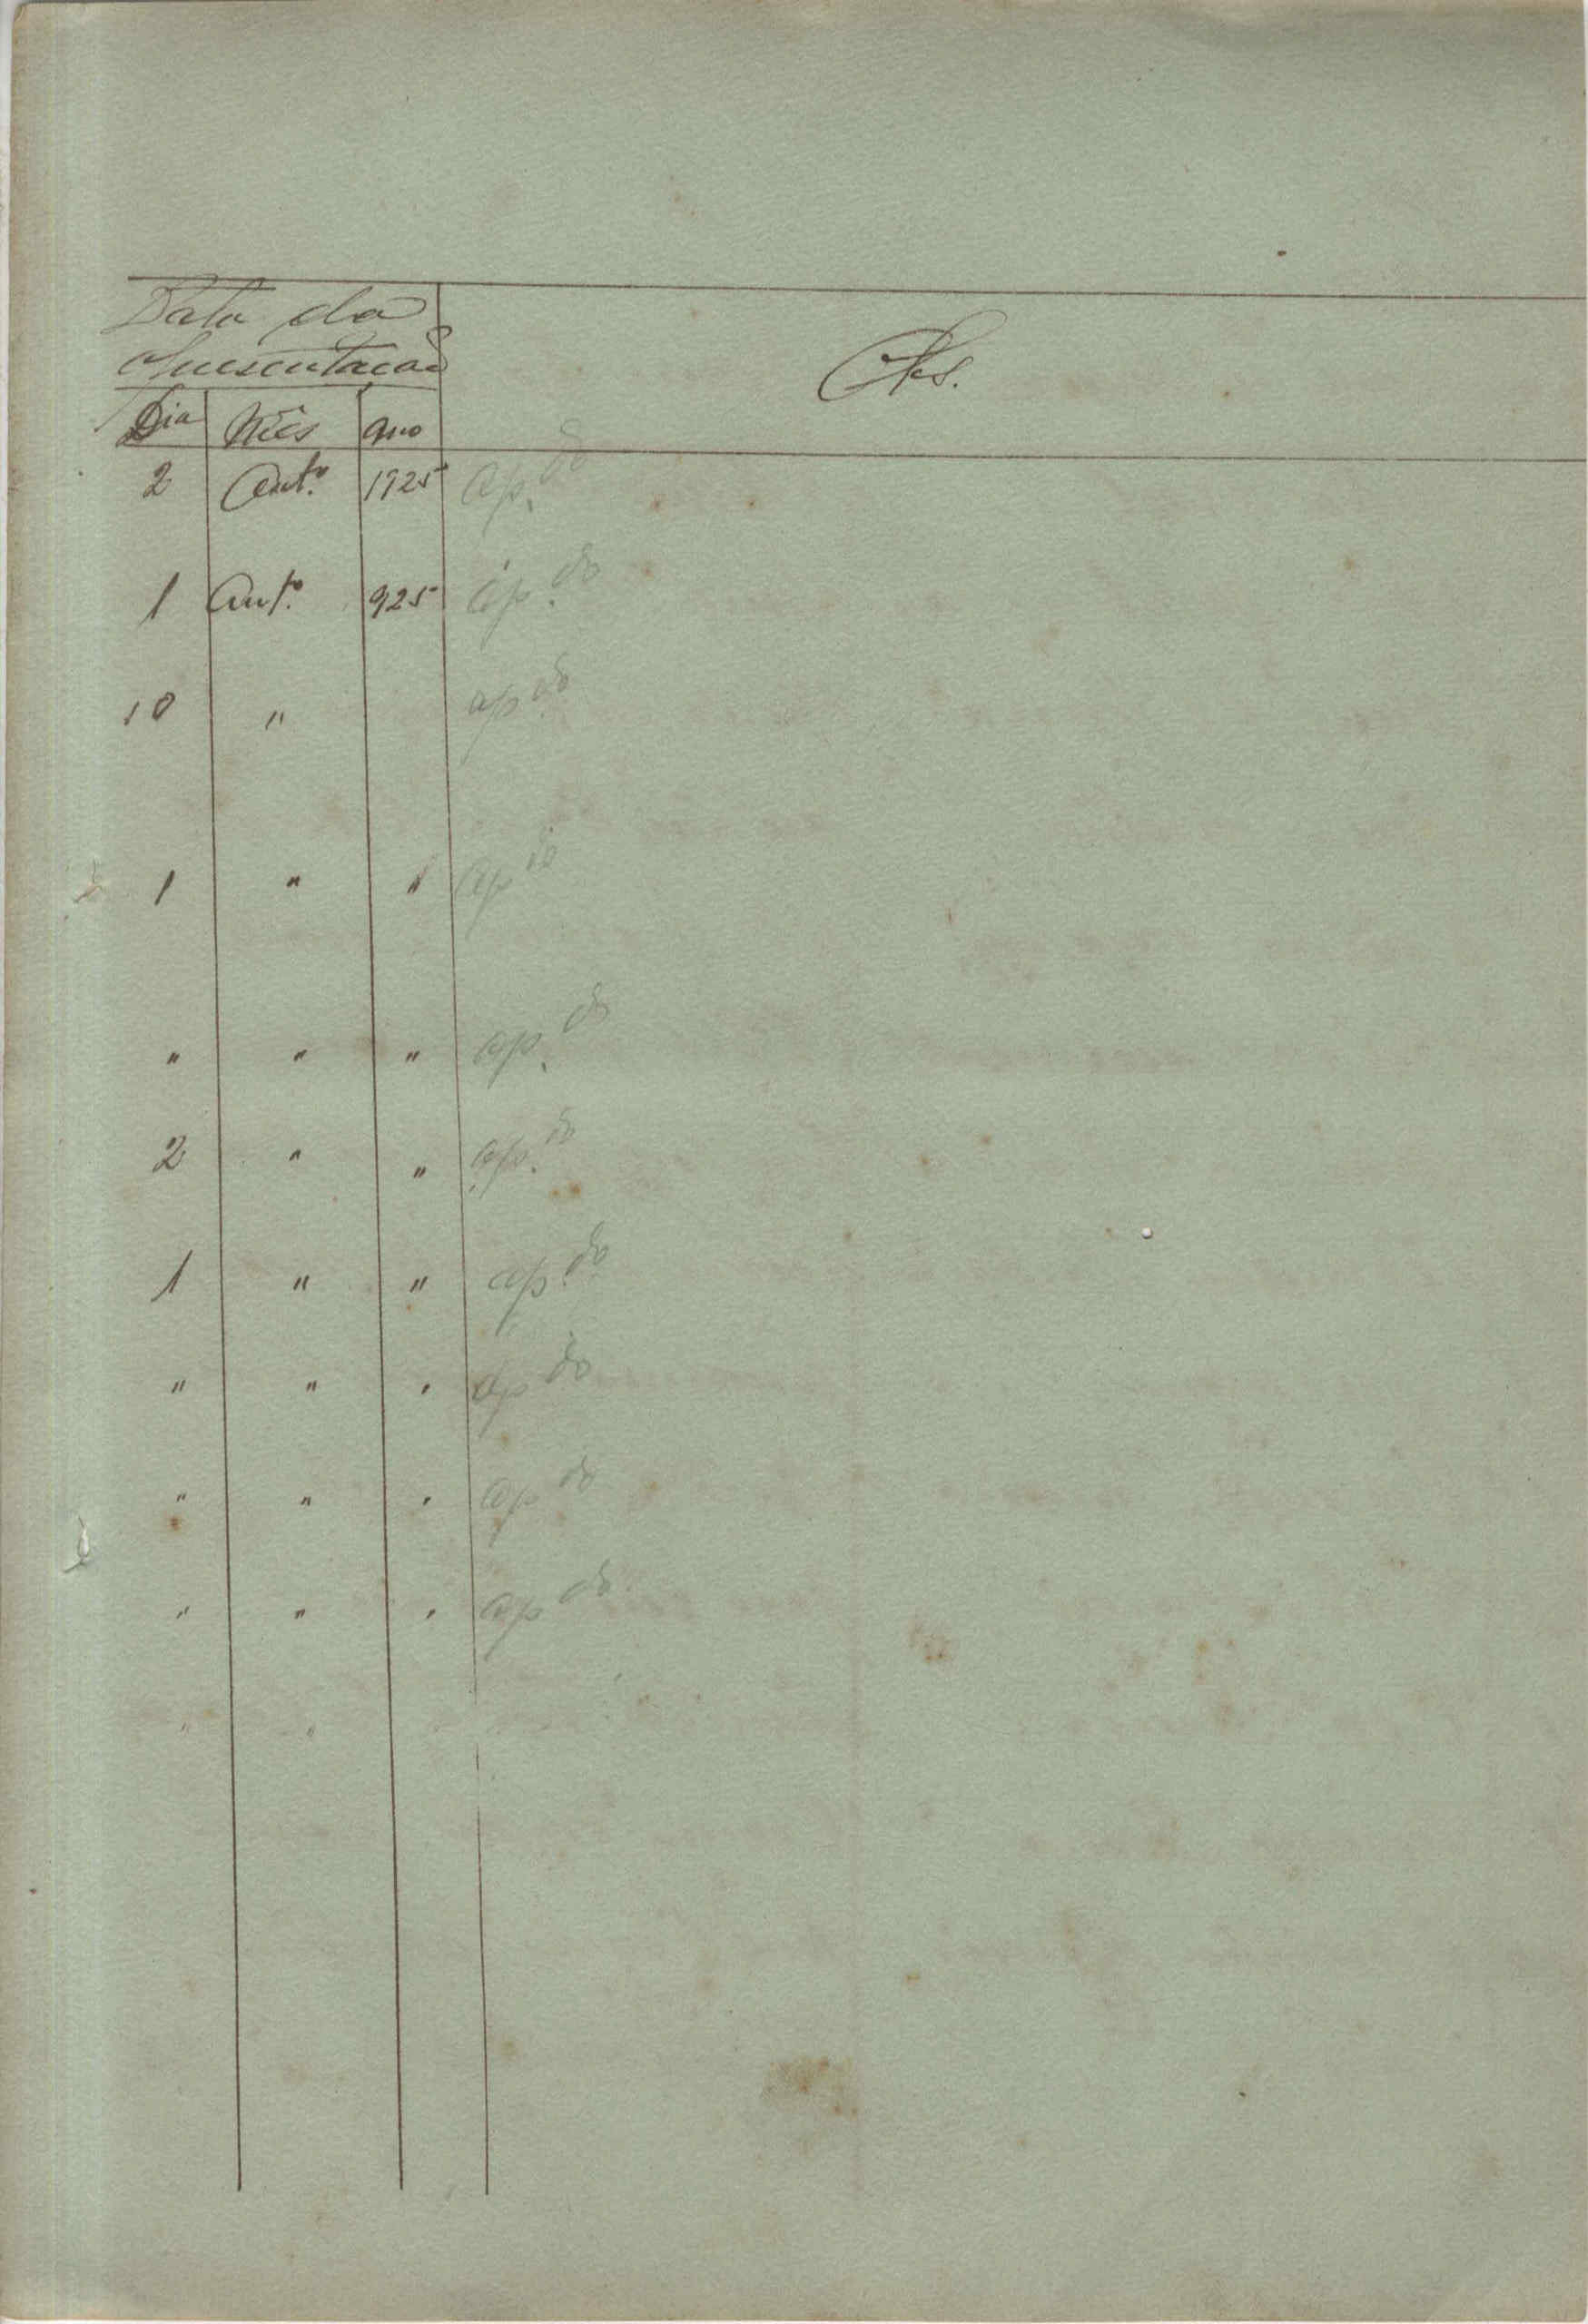 Data da
Apresentação
Obs.
Dia Mês Ano
2 Out.º 1925 ap.do
1 Out.º 925 ap.do
10 " ap do
1 " " ap do
" " " ap.do
2 " " ap.do
1 " " ap.do
" " " ap do
" " " ap do
" " " ap do
" "